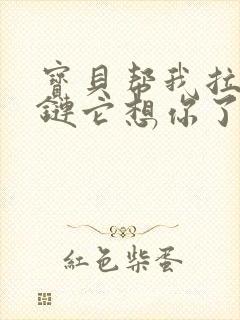 寳貝帮我拉
鏈它想你了
紅色柴蛋